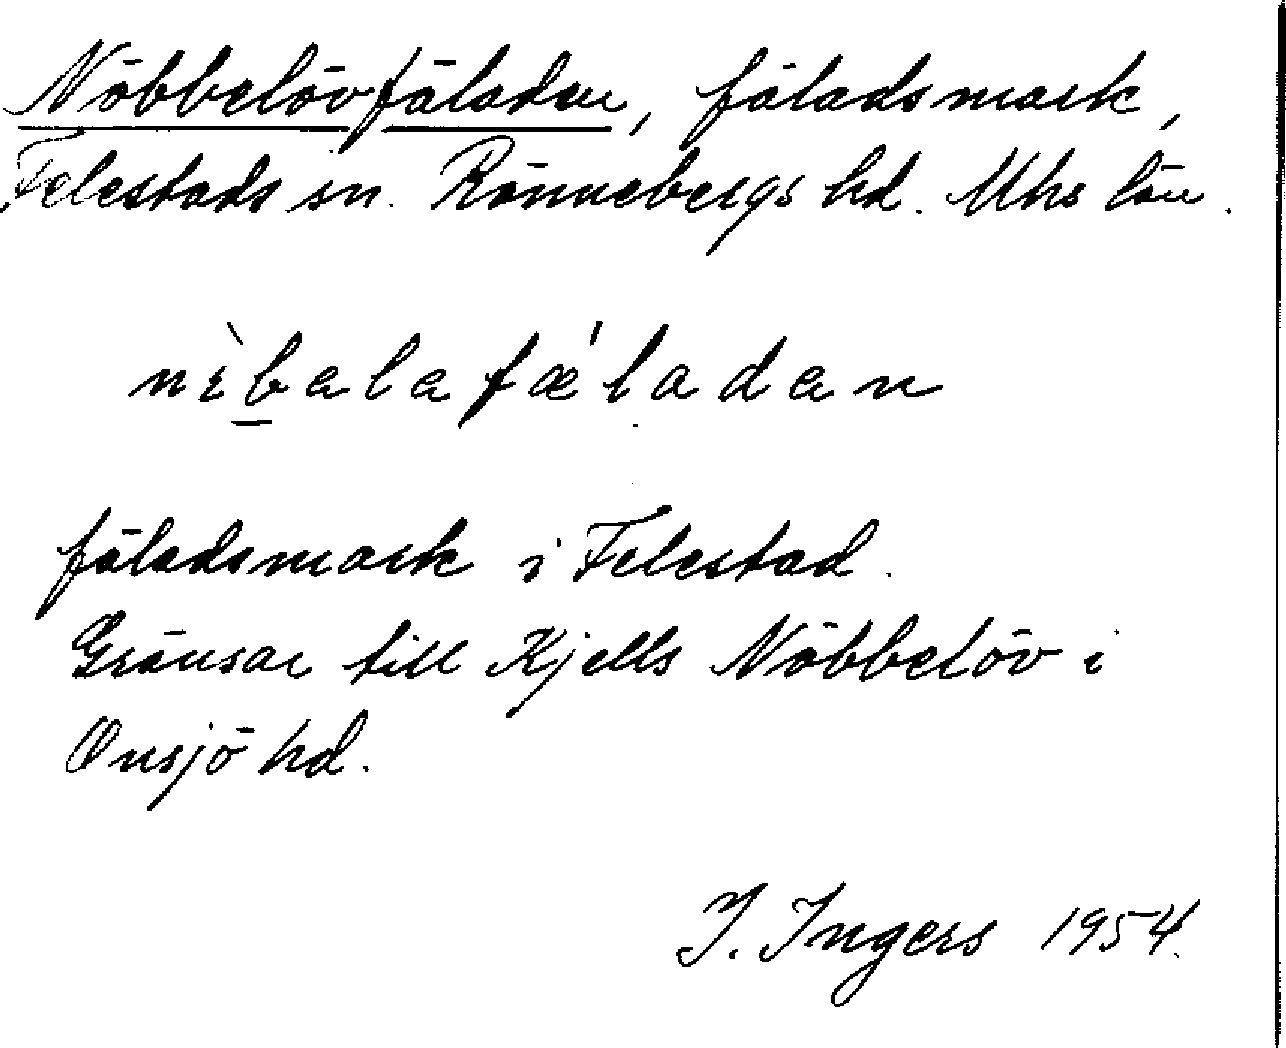 Nöbbelövfäladen, fäladsmark,
Felestads sn. Rönnebergs hd. Mhs län.
nìbalafæ'ladan
fäladsmark i Felestad.
Gränsar till Kjells Nöbbelöv i
Onsjö hd.
I. Ingers 1954.